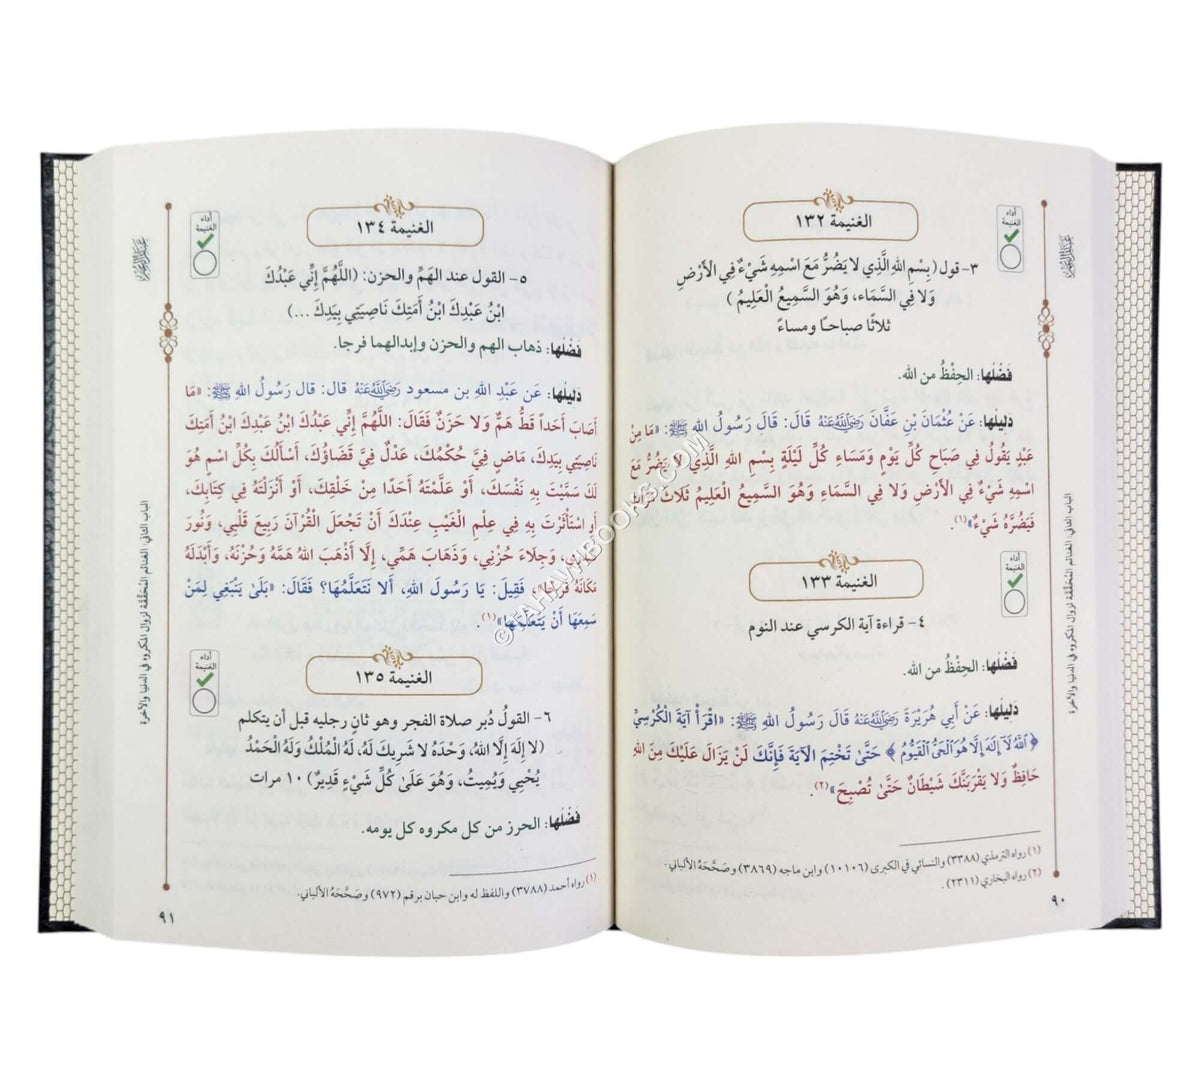 أداء
الغنيمة
الغنيمة ١٣٢
٣- قول (بِسْمِ اللهِ الَّذِي لا يَضُرُّ مَعَ اسْمِهِ شَيْءٌ فِي الأَرْضِ
وَلا فِي السَّمَاء، وَهُوَ السَّمِيعُ الْعَلِيمُ)
ثلاثًا صباحًا ومساءً
فَضْلُها: الحِفْظُ من الله.
دَلِيلُها: عَنْ عُثْمَانَ بْنِ عَفَّانَ رَضِيَ اللَّهُ عَنْهُ قَالَ: قَالَ رَسُولُ اللهِ ﷺ: «مَا مِنْ
عَبْدٍ يَقُولُ فِي صَبَاحِ كُلِّ يَوْمٍ وَمَسَاءِ كُلِّ لَيْلَةٍ بِسْمِ اللهِ الَّذِي لَا يَضُرُّ مَعَ
اسْمِهِ شَيْءٌ فِي الأَرْضِ وَلا فِي السَّمَاءِ وَهُوَ السَّمِيعُ الْعَلِيمُ ثَلَاثَ مَرَّاتٍ
فَيَضُرَّهُ شَيْءٌ»(١).
أداء
الغنيمة
الغنيمة ١٣٣
٤- قراءة آية الكرسي عند النوم
فَضْلُها: الحِفْظُ من الله.
دَلِيلُها: عَنْ أَبِي هُرَيْرَةَ رَضِيَ اللَّهُ عَنْهُ قَالَ رَسُولُ اللهِ ﷺ: «اقْرَأْ آيَةَ الْكُرْسِيِّ
﴿اللَّهُ لَا إِلَٰهَ إِلَّا هُوَ الْحَيُّ الْقَيُّومُ﴾ حَتَّى تَخْتِمَ الآيَةَ فَإِنَّكَ لَنْ يَزَالَ عَلَيْكَ مِنَ اللهِ
حَافِظٌ وَلَا يَقْرَبَنَّكَ شَيْطَانٌ حَتَّى تُصْبِحَ»(٢).
(١) رواه الترمذي (٣٣٨٨) والنسائي في الكبرى (١٠١٠٦) وابن ماجه (٣٨٦٩) وصَحَّحَهُ الألباني.
(٢) رواه البخاري (٢٣١١).
٩٠
الباب الثاني: الغنائم المُحَقِّقة لزوال المكروه في الدنيا والآخرة
أداء
الغنيمة
الغنيمة ١٣٤
٥- القول عند الهَمِّ والحزن: (اللَّهُمَّ إِنِّي عَبْدُكَ
ابْنُ عَبْدِكَ ابْنُ أَمَتِكَ نَاصِيَتِي بِيَدِكَ ...)
فَضْلُها: ذهاب الهم والحزن وإبدالهما فرجا.
دَلِيلُها: عَن عَبْدِ اللهِ بن مسعود رَضِيَ اللَّهُ عَنْهُ قال: قال رَسُولُ اللهِ ﷺ: «مَا
أَصَابَ أَحَداً قَطُّ هَمٌّ وَلَا حَزَنٌ فَقَالَ: اللَّهُمَّ إِنِّي عَبْدُكَ ابْنُ عَبْدِكَ ابْنُ أَمَتِكَ
نَاصِيَتِي بِيَدِكَ، مَاضٍ فِيَّ حُكْمُكَ، عَدْلٌ فِيَّ قَضَاؤُكَ، أَسْأَلُكَ بِكُلِّ اسْمٍ هُوَ
لَكَ سَمَّيْتَ بِهِ نَفْسَكَ، أَوْ عَلَّمْتَهُ أَحَدًا مِنْ خَلْقِكَ، أَوْ أَنْزَلْتَهُ فِي كِتَابِكَ،
أَوِ اسْتَأْثَرْتَ بِهِ فِي عِلْمِ الْغَيْبِ عِنْدَكَ أَنْ تَجْعَلَ الْقُرْآنَ رَبِيعَ قَلْبِي، وَنُورَ
صَدْرِي، وَجِلَاءَ حُزْنِي، وَذَهَابَ هَمِّي، إِلَّا أَذْهَبَ اللهُ هَمَّهُ وَحُزْنَهُ، وَأَبْدَلَهُ
مَكَانَهُ فَرَجًا»، فَقِيلَ: يَا رَسُولَ اللهِ، أَلَا نَتَعَلَّمُهَا؟ فَقَالَ: «بَلَى يَنْبَغِي لِمَنْ
سَمِعَهَا أَنْ يَتَعَلَّمَهَا»(١).
أداء
الغنيمة
الغنيمة ١٣٥
٦- القولُ دُبر صلاة الفجر وهو ثانٍ رجليه قبل أن يتكلم
(لا إِلهَ إِلَّا اللهُ، وَحْدَهُ لا شَرِيكَ لَهُ، لَهُ الْمُلْكُ وَلَهُ الْحَمْدُ
يُحْيِي وَيُمِيتُ، وَهُوَ عَلَىٰ كُلِّ شَيْءٍ قَدِيرٌ) ١٠ مرات
فَضْلُها: الحرز من كل مكروه كل يومه.
(١) رواه أحمد (٣٧٨٨) واللفظ له وابن حبان برقم (٩٧٢) وصَحَّحَهُ الألباني.
٩١
الباب الثاني: الغنائم المُحَقِّقة لزوال المكروه في الدنيا والآخرة
© FAHAWABOOKS.COM